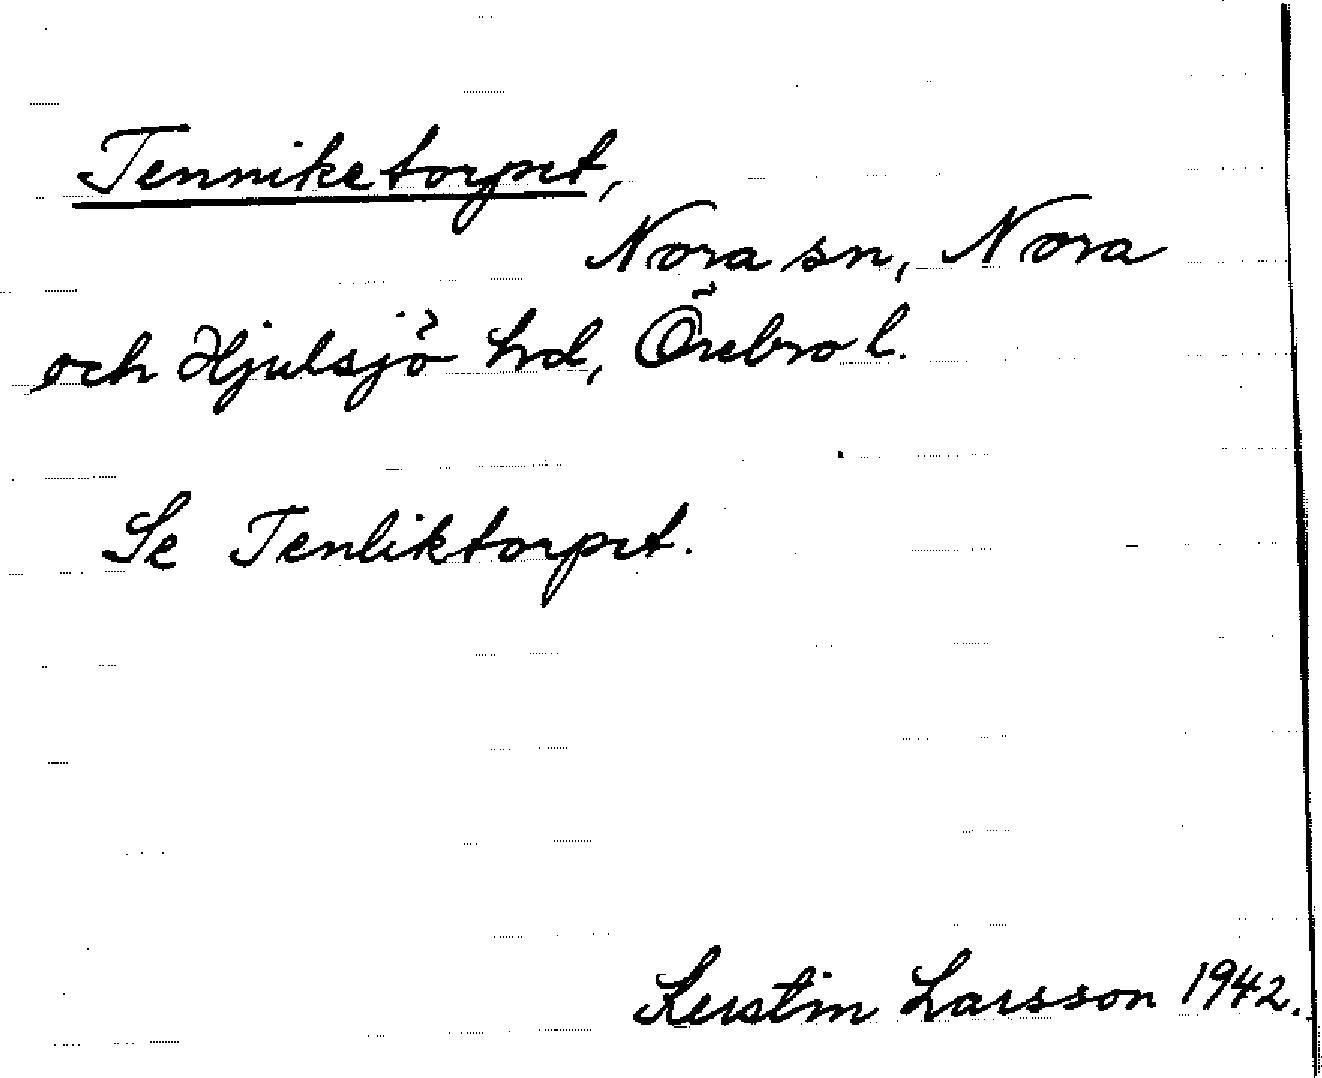 Tenniketorpet,
Nora sn, Nora
och Hjulsjö hrd, Örebro l.
Se Tenliktorpet.
Kerstin Larsson 1942.